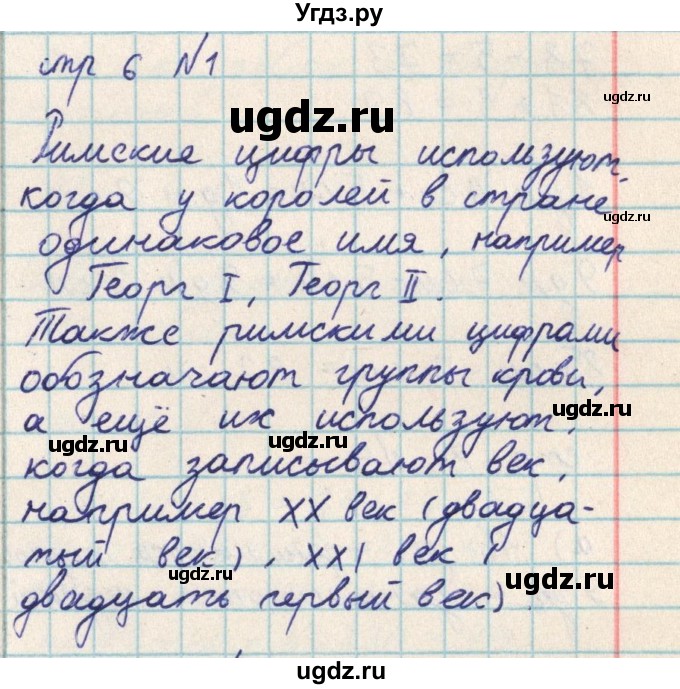 Угдз.ру
стр 6 №1
ugdz.ru
ugdz.ru
Римские цифры используют,
когда у королей в стране
ugdz.ru
одинаковое имя, например
Георг I, Георг II.
Также римскими цифрами
ообозначают группы крови,
ugdz.ru
а ещё их используют,
ugdz.ru
ugdz.ru
когда записывают век,
например XX век (двадца-
тый век), XXI век (
ugdz.ru
ugdz.ru
двадцать первый век)
ugdz.ru